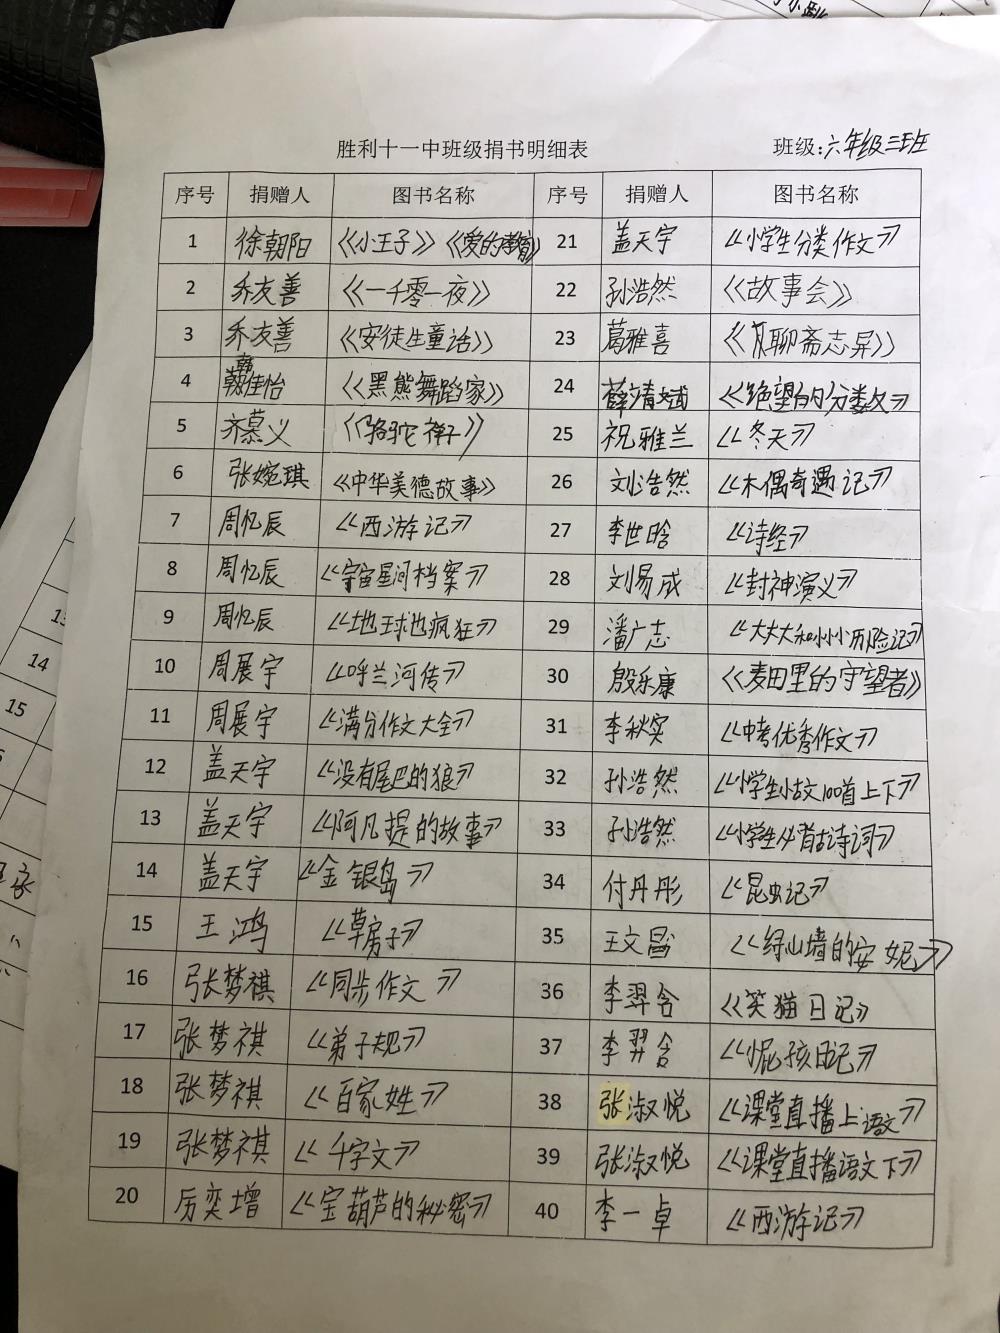 胜利十一中班级捐书明细表 班级:六年级三班
序号 捐赠人 图书名称 序号 捐赠人 图书名称
1 徐朝阳 《小王子》《爱的教育》 21 盖天宇 《小学生分类作文》
2 乔友善 《一千零一夜》 22 孙浩然 《故事会》
3 乔友善 《安徒生童话》 23 葛雅喜 《聊斋志异》
4 韩佳怡 《黑熊舞蹈家》 24 薛靖斌 《绝望的分数》
5 齐慕义 《骆驼祥子》 25 祝雅兰 《冬天》
6 张婉琪 《中华美德故事》 26 刘浩然 《木偶奇遇记》
7 周忆辰 《西游记》 27 李世晗 《诗经》
8 周忆辰 《宇宙星河档案》 28 刘易成 《封神演义》
9 周忆辰 《地球也疯狂》 29 潘广志 《大大大和小小小历险记》
10 周展宇 《呼兰河传》 30 殷乐康 《麦田里的守望者》
11 周展宇 《满分作文大全》 31 李秋实 《中考优秀作文》
12 盖天宇 《没有尾巴的狼》 32 孙浩然 《小学生小古文100首上下》
13 盖天宇 《阿凡提的故事》 33 孙浩然 《小学生必背古诗词》
14 盖天宇 《金银岛》 34 付丹彤 《昆虫记》
15 王鸿 《草房子》 35 王文昌 《绿山墙的安妮》
16 张梦祺 《同步作文》 36 李羿含 《笑猫日记》
17 张梦祺 《弟子规》 37 李羿含 《小屁孩日记》
18 张梦祺 《百家姓》 38 张淑悦 《课堂直播上语文》
19 张梦祺 《千字文》 39 张淑悦 《课堂直播语文下》
20 厉奕增 《宝葫芦的秘密》 40 李一卓 《西游记》
13
14
15